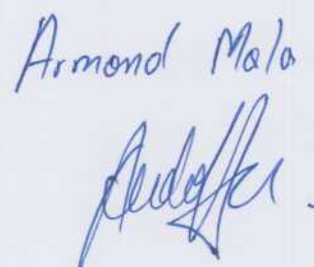 Armond Mala